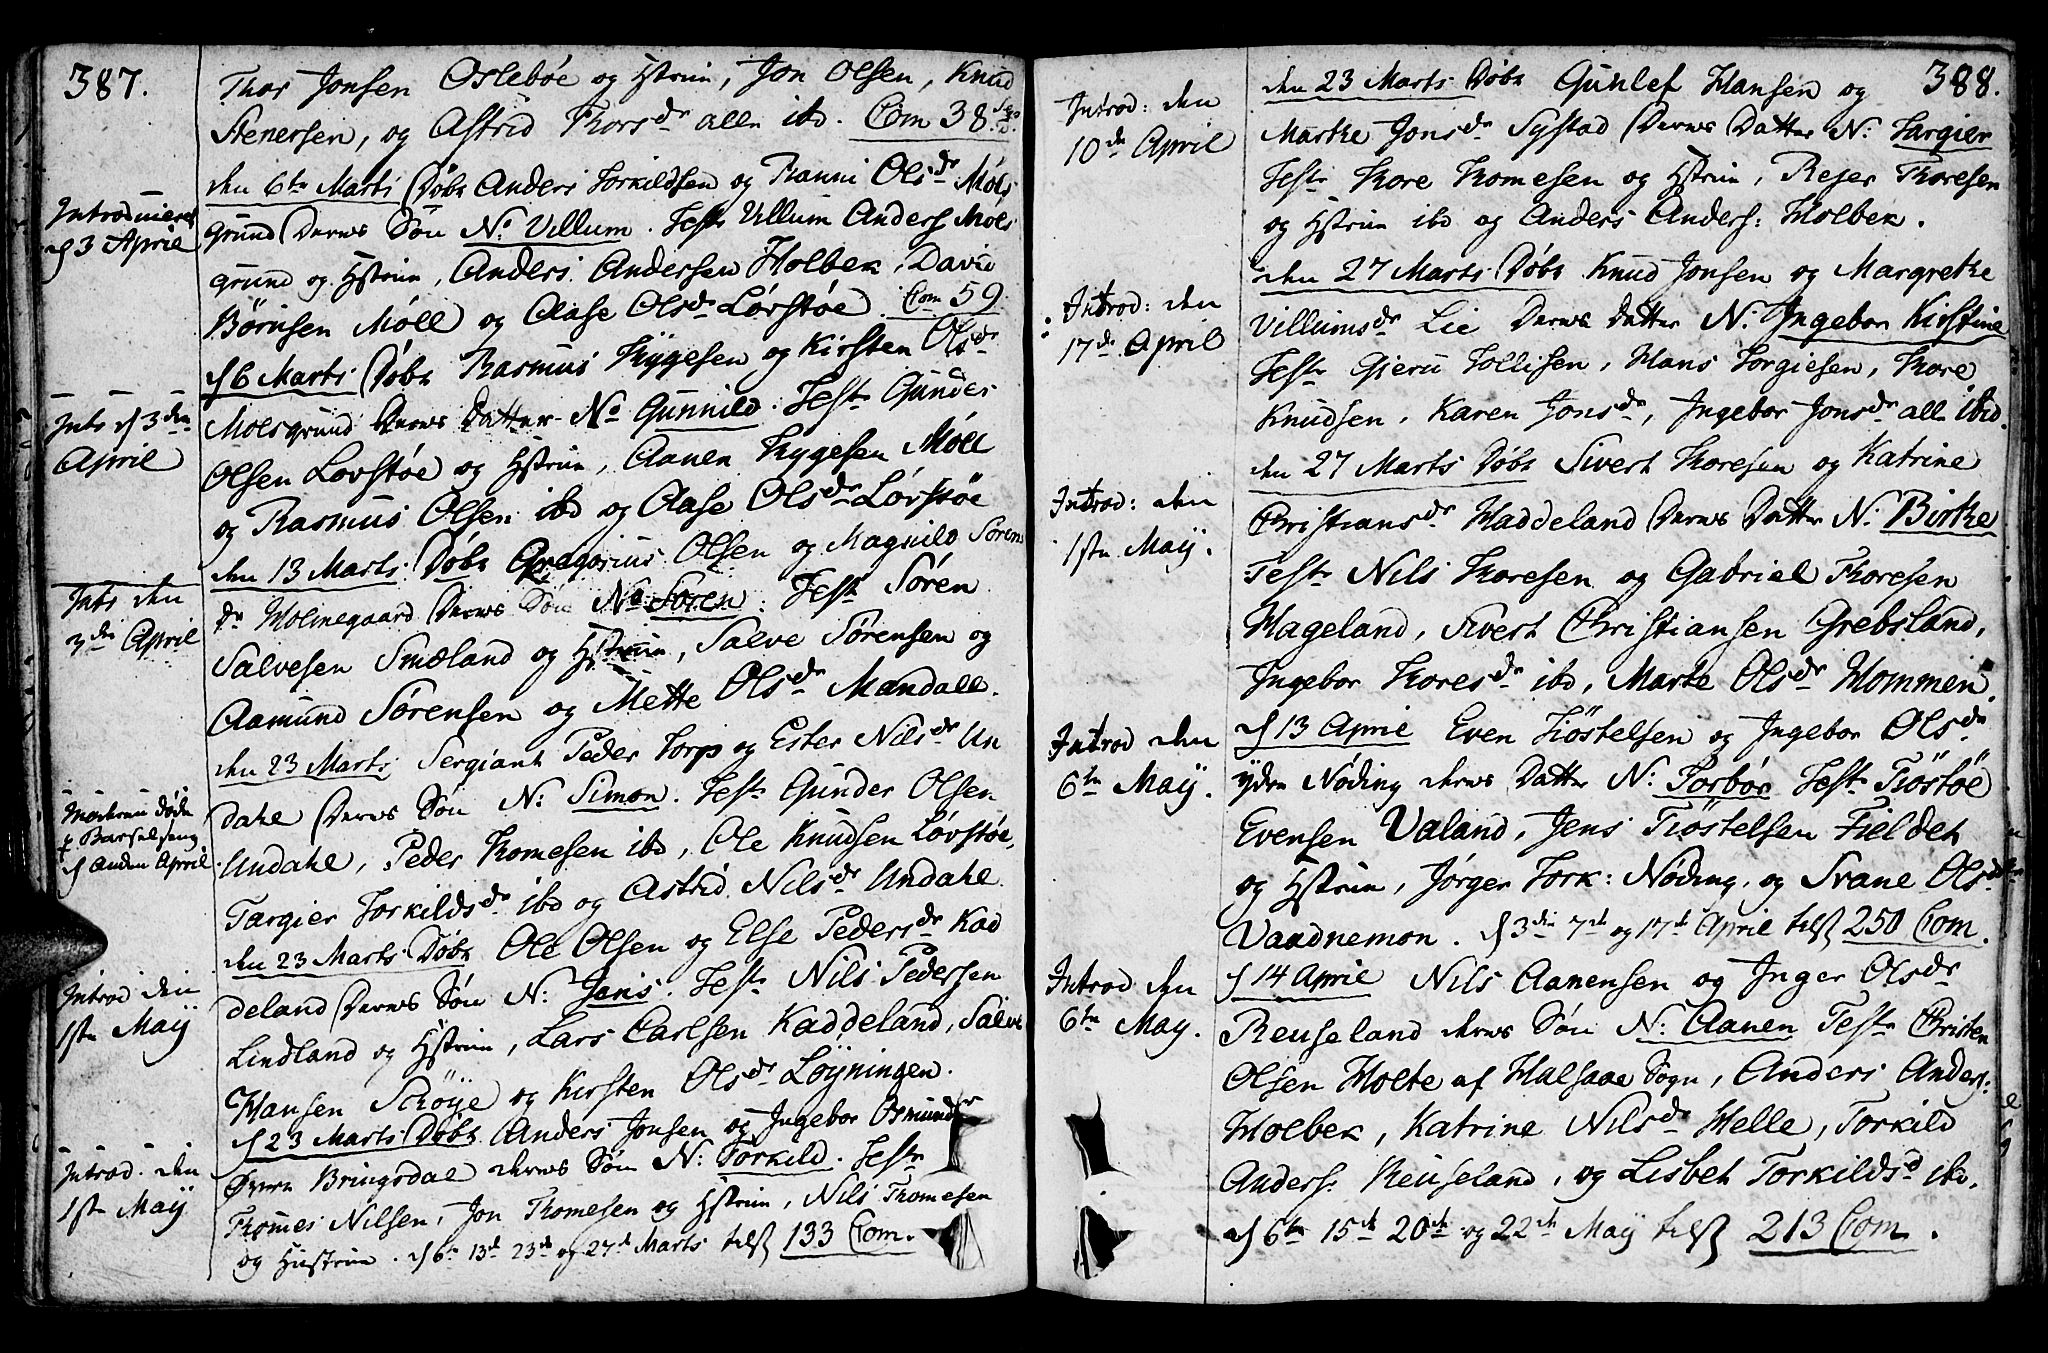 387.
Thor Jonsen Oslebøe og Hstrue, Jon Olsen, Knud
Stenersen, og Astrid Thorsdr alle ibd. Com 38
Introduceret
d 3 April
den 6te Marts Døbt Anders Torkildsen og Ranni Olsdr Møls
grund Deres Søn N. Villum. Test Villum Anders Møls
grund og Hstrue, Anders Andersen Holbek, David
Børusen Møll og Aase Olsdr Løvstøe. Com 59
Intr d 3den
April
d 6 Marts Døbt Rasmus Thygesen og Kirsten Olsdr
Molsgrund Deres Datter No Gunnild. Test Gunder
Olsen Lovstøe og Hstrue, Aanen Thygesen Møll
og Rasmus Olsen ibd og Aase Olsdr Løvstøe
Intr den
3die April
den 13 Marts Døbt Gregorius Olsen og Magnild Sørens
dr Holmegaard Deres Søn No Søren. Test Søren
Salvesen Smæland og Hstrue, Salve Sørensen og
Aamund Sørensen og Mette Olsdr Mandall.
Moderen døde
i Barselseng
d Anden April
den 23 Marts Sergiant Peder Torp og Ester Nilsdr Un
dahl Deres Søn N: Simon. Test Gunder Olsen
Undahl, Peder Thomesen ibd, Ole Knudsen Løvstøe,
Targier Torkildsdr ibd og Astrid Nilsdr Undahl.
Introd den
1ste Maÿ
den 23 Marts Døbt Ole Olsen og Else Pedersdr Kad
deland Deres Søn N: Jens. Test Nils Pedersen
Lindland og Hstrue, Lars Carlsen Kaddeland, Salve
Hansen Schøÿe og Kirsten Olsdr Løyningen.
Introd: den
1ste Maÿ
d 23 Marts Døbt Anders Jonsen og Ingebor Osmundsdr
Øvre Bringsdal deres Søn N: Torkild. Test
Thomes Nilsen, Jon Thomesen og Hstrue, Nils Thomesen
og Hustrue. d 6te 13de 23de og 27de Marts tilst 133 Com.
388.
Introd: den
10de April
den 23 Marts Døbt Gunlef Hansen og
Marthe Jonsdr Systad Deres Datter N: Targier
Test Thore Thomesen og Hstrue, Rejer Thoresen
og Hstrue ibd og Anders Anders: Holbek.
Introd: den
17de April
den 27 Marts Døbt Knud Jonsen og Margrethe
Villumsdr Lie Deres Datter N. Ingebor Kirstine
Test Gjeru Tollisen, Hans Torgiesen, Thore
Knudsen, Karen Jonsdr, Ingebor Jonsdr alle ibid.
Introd: den
1ste Maÿ.
den 27 Marts Døbt Sivert Thoresen og Katrine
Christiansdr Haddeland Deres Datter N: Birthe
Test Nils Thoresen og Gabriel Thoresen
Hageland, Sivert Christiansen Grebsland,
Ingebor Thoresdr ibd, Marthe Olsdr Hommen.
Introd den
6te Maÿ.
d 13 April Even Tiøstelsen og Ingebor Olsdr
ydre Nøding deres Datter N: Torbor Test Tiøstøl
Evensen Valand, Jens Tiøstelsen Fieldet
og Hstrue, Jørger Tork: Nøding, og Svane Olsdr
Vaadnemon. d 3die 7de og 17de April tilst 250 Com.
Introd den
6te May.
d 14 April Nils Aanensen og Inger Olsdr
Reuseland deres Søn N: Aanen Test Christen
Olsen Holte af Halsaae Sogn, Anders Anders:
Holbek, Katrine Nilsdr Helle, Torkild
Anders: Reuseland, og Lisbeth Torkildsd ibd.
d 6te 15de 20de og 22de Maÿ tilst 213 Com.